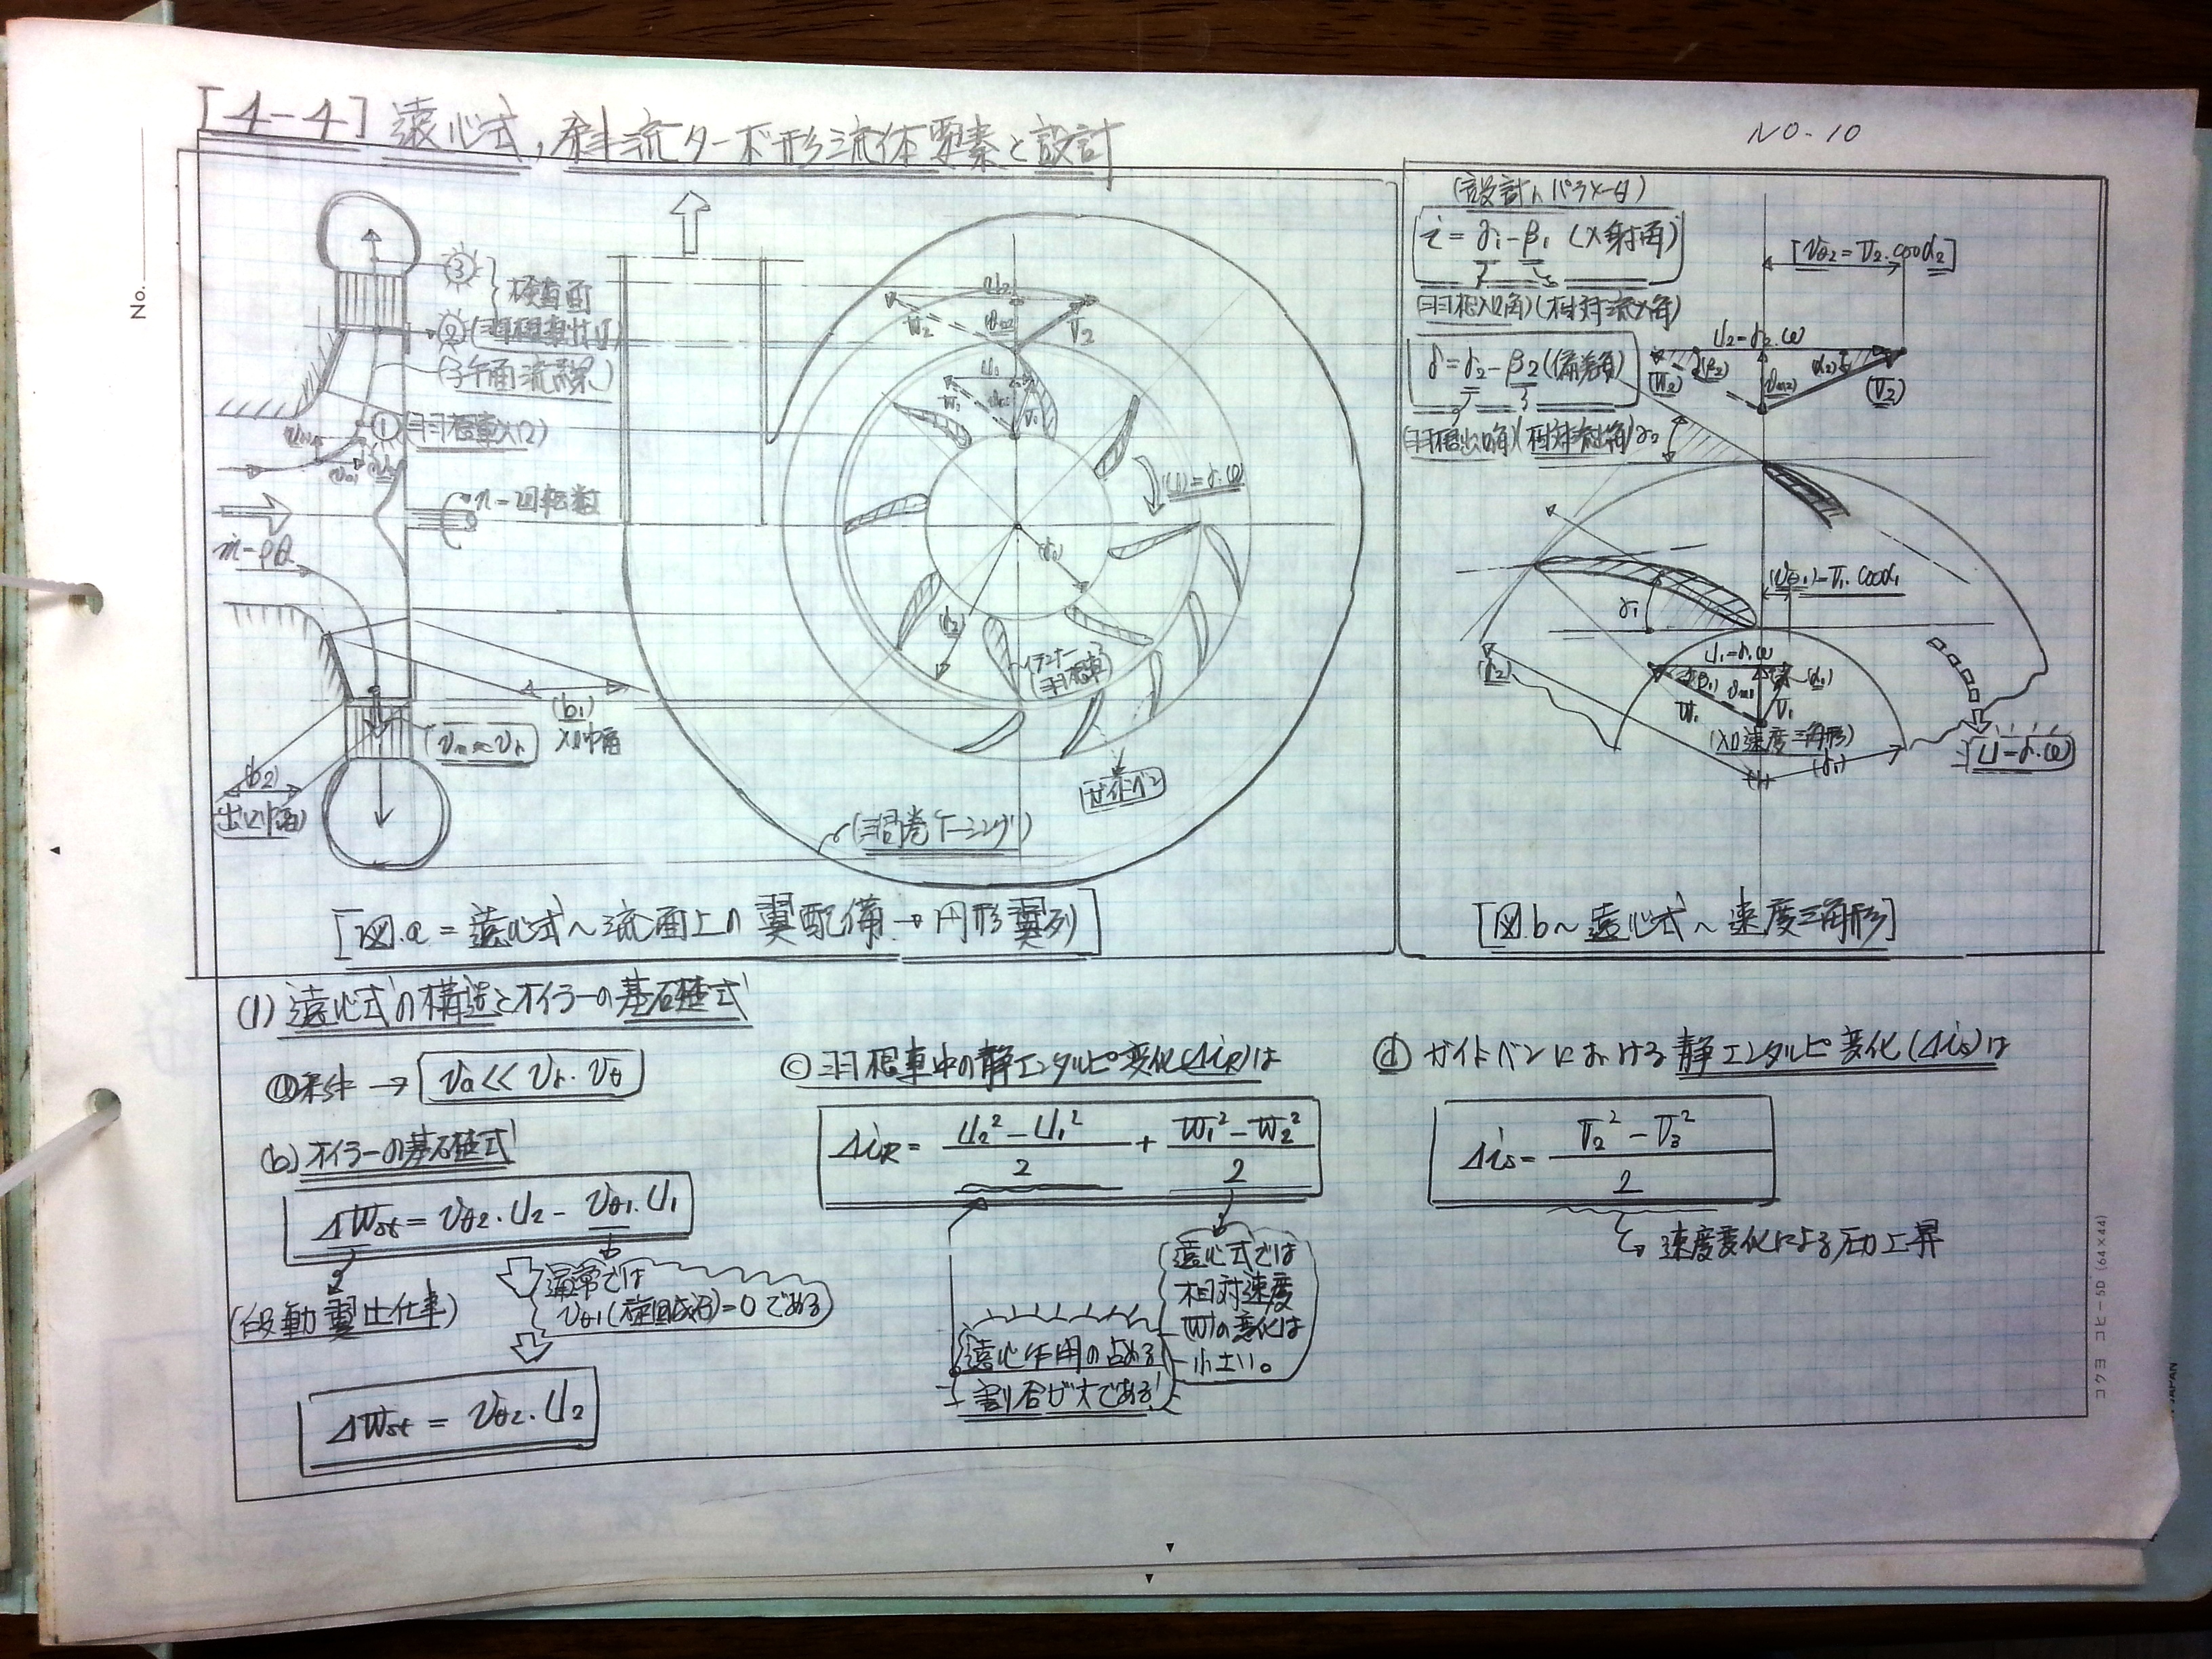 [4-4] 遠心式,斜流ターボ形流体要素と設計
NO.10
No.
③
検査面
②(羽根車出口)
(子午面流線)
①(羽根車入口)
n=回転数
ṁ=ρQ
(b1)
入口巾
(b2)
(出口巾)
(Vm≈Vr)
U2
W2
Vm2
V2
U1
W1
V1
(U)=r.ω
(r1)
(r2)
インナー
(羽根車)
ガイドベン
(渦巻ケーシング)
[図.a=遠心式~流面上の翼配備→円形翼列]
(設計パラメータ)
i=γ1-β1(入射角)
(羽根入口角)(相対流入角)
δ=γ2-β2(偏差角)
(羽根出口角)(相対流出角)
[Vθ2=V2.cosα2]
U2=r2.ω
(β2)
(α2)
(W2)
(Vm2)
(V2)
γ2
γ1
(Vθ1)=V1.cosα1
U1=r.ω
(β1)
Vm1
(α1)
W1
V1
(入口速度三角形)
(r2)
(r1)
U=r.ω
[図.b~遠心式~速度三角形]
(1)遠心式の構造とオイラーの基礎式
ⓐ条件→Va<<Vr.Vθ
(b)オイラーの基礎式
ΔWst=Vθ2.U2-Vθ1.U1
(段動翼比仕事)
通常では
Vθ1(旋回成分)=0である
ΔWst=Vθ2.U2
ⓒ羽根車中の静エンタルピ変化(ΔiR)は
ΔiR=(U2²-U1²)/2+(W1²-W2²)/2
遠心作用の占める
割合が大である!
遠心式では
相対速度
(W)の変化は
小さい。
ⓓガイドベンにおける静エンタルピ変化(Δis)は
Δis=(V2²-V3²)/2
速度変化による圧力上昇
コクヨ コヒ-5D(64×44)
JAPAN